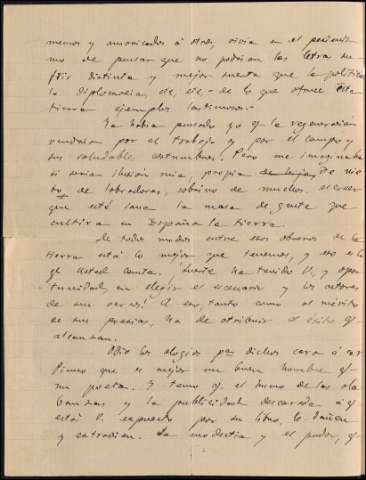 menos y amoricados á otros, vivía en el pesimis-
mo de pensar que no podrían las letras su-
frir distinta y mejor suerte que la política
la diplomacia, etc, etc - de lo que ofrece esta
tierra ejemplos lastimosos.-
Ya había pensado yo q. la regeneración
vendrían por el trabajo y por el campo y
sus saludables costumbres. Pero me imaginaba
si sería ilusión mía, propia de nie-
to de labradores, sobrino de muchos, el creer
que está sana la masa de gente que
cultiva en España la tierra.
De todos modos entre esos obreros de la
tierra está lo mejor que tenemos, y eso es lo
q. usted canta. Suerte ha tenido V. y opor-
tunidad en elegir el escenario y los actores
de sus versos! A eso, tanto como al mérito
de sus poesías, ha de atribuir el éxito q.
alcanzan.
Odio los elogios pa dichos cara á cara
Pienso que es mejor un buen hombre q.
un poeta. Y temo q. el humo de las ala
banzas y la publicidad descarada á q.
está V. expuesto por su libro, lo dañen
y extravíen. La modestia y el pudor, q.